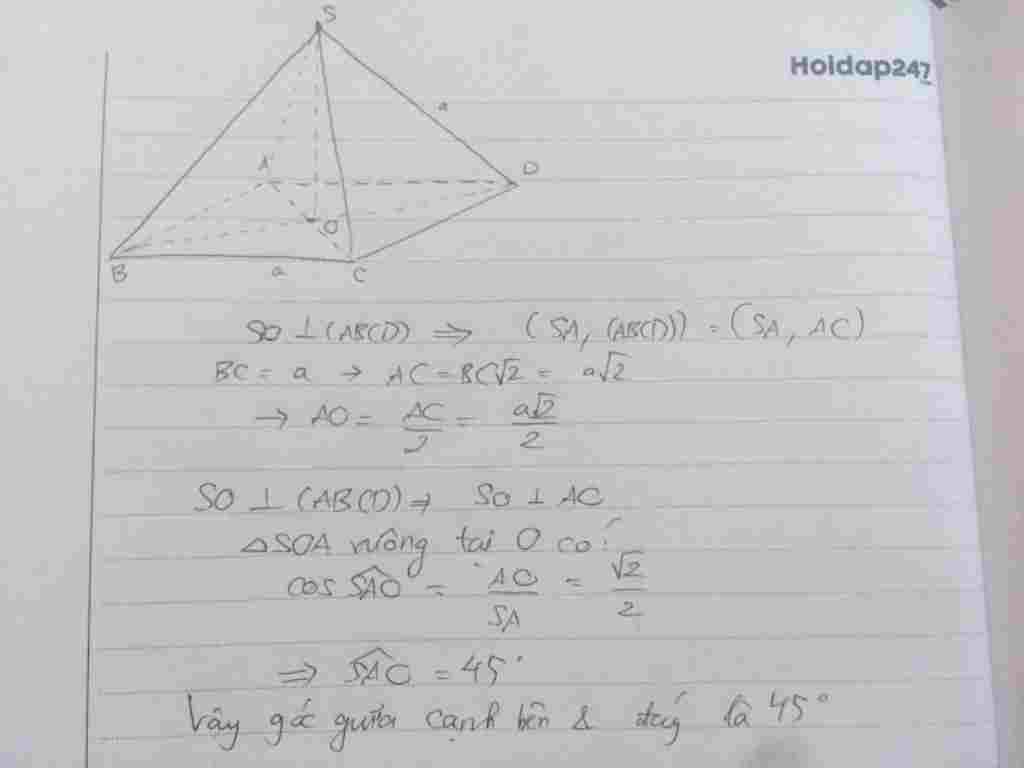 S
Hoidap247
a
A
D
O
B
a
C
SO ⊥ (ABCD) ⇒ (SA, (ABCD)) = (SA, AC)
BC = a → AC = BC√2 = a√2
→ AO = AC/2 = a√2/2
SO ⊥ (ABCD) ⇒ SO ⊥ AC
△SOA vuông tại O có:
cos SAO = AO/SA = √2/2
⇒ SAO = 45°
Vậy góc giữa cạnh bên & đáy là 45°